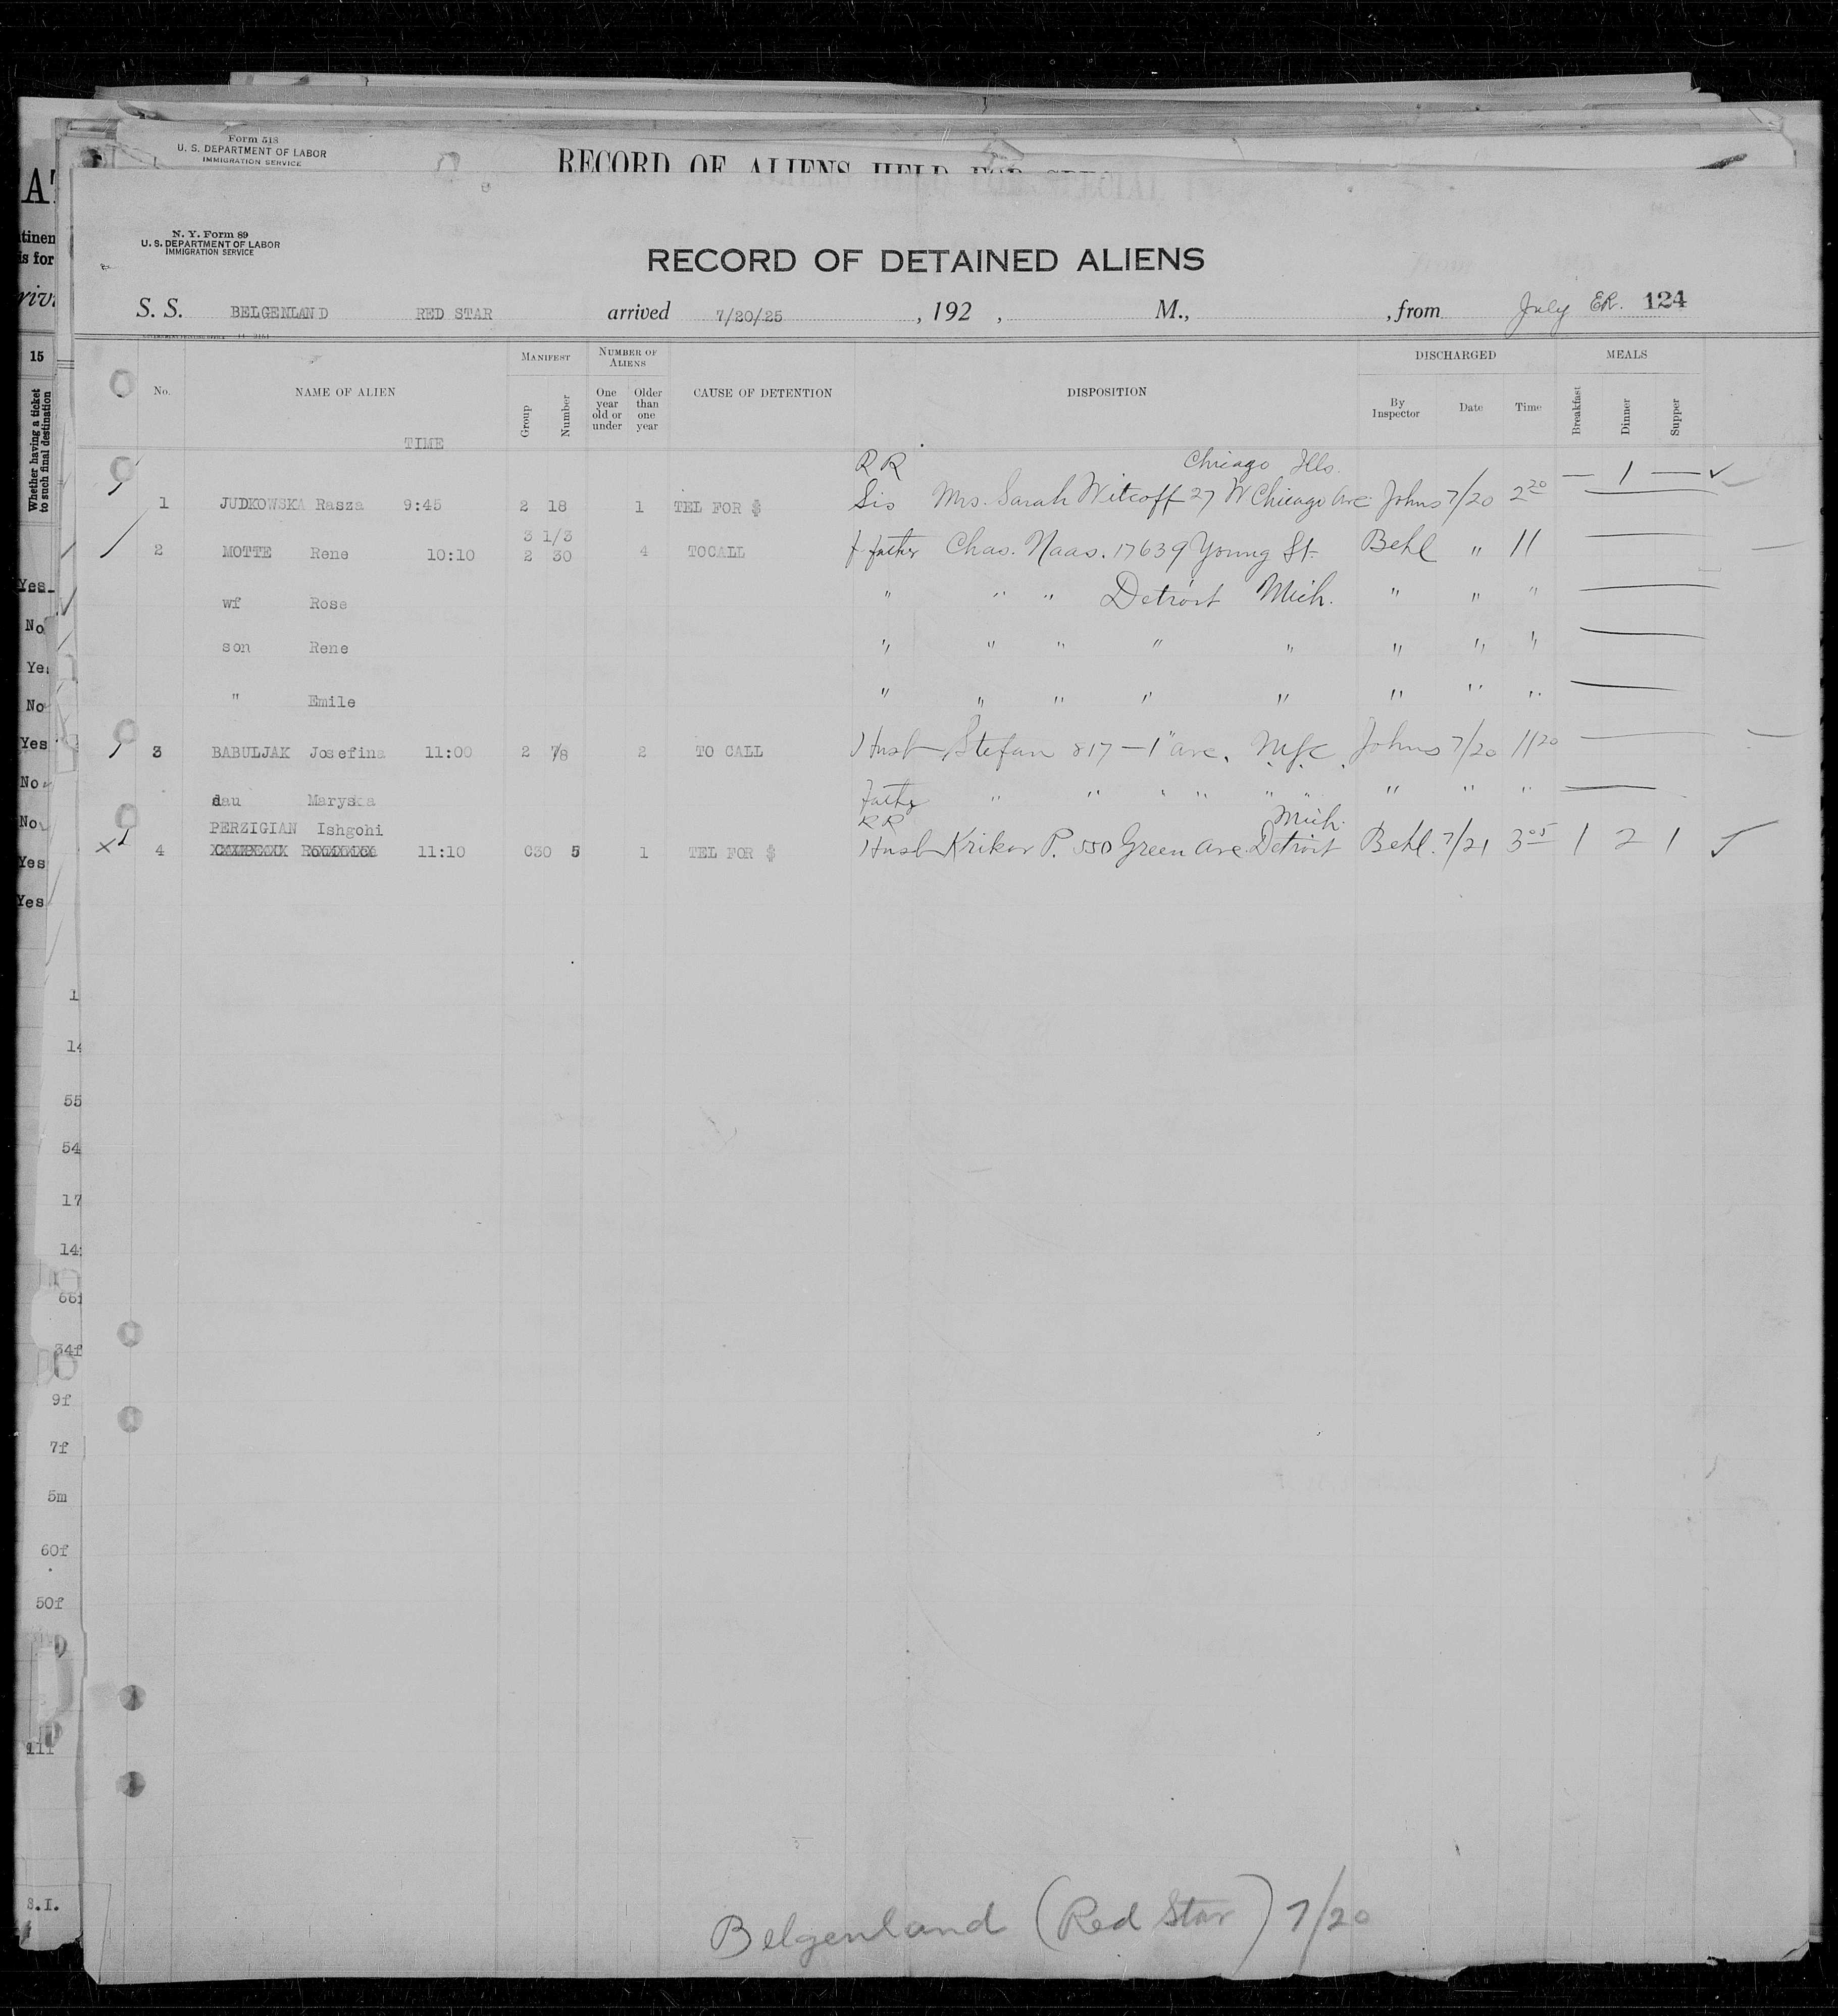 Form 518
U. S. DEPARTMENT OF LABOR
IMMIGRATION SERVICE
RECORD OF ALIENS HELD FOR SPECIAL
N. Y. Form 89
U. S. DEPARTMENT OF LABOR
IMMIGRATION SERVICE
RECORD OF DETAINED ALIENS
S. S. BELGENLAND RED STAR arrived 7/20/25, 192 , M., , from July ER. 124
No. NAME OF ALIEN TIME MANIFEST Group Number NUMBER OF ALIENS One year old or under Older than one year CAUSE OF DETENTION DISPOSITION DISCHARGED By Inspector Date Time MEALS Breakfast Dinner Supper
RR Chicago Ills. — 1 —
1 JUDKOWSKA Rasza 9:45 2 18 1 TEL FOR $ Sis Mrs. Sarah Witcoff 27 W Chicago Ave Johns 7/20 2 20
3 1/3
2 MOTTE Rene 10:10 2 30 4 TOCALL f father Chas. Naas. 17639 Young St. Behl " 11
wf Rose " " " Detroit Mich. " " "
son Rene " " " " " " " "
" Emile " " " " " " " "
3 BABULJAK Josefina 11:00 2 7/8 2 TO CALL Husb Stefan 817 - 1" ave. N.Y.C. Johns 7/20 11 20
dau Maryska Father " " " " " " " " "
PERZIGIAN Ishgohi RR Mich.
4 11:10 C30 5 1 TEL FOR $ Husb Krikor P. 550 Green Ave Detroit Behl. 7/21 3 05 1 2 1
Belgenland (Red Star) 7/20
15
Whether having a ticket to such final destination
Yes
No
Ye
No
Yes
No
No
Yes
Yes
1
14
55
54
17
14
34f
9f
7f
5m
60f
50f
S.I.